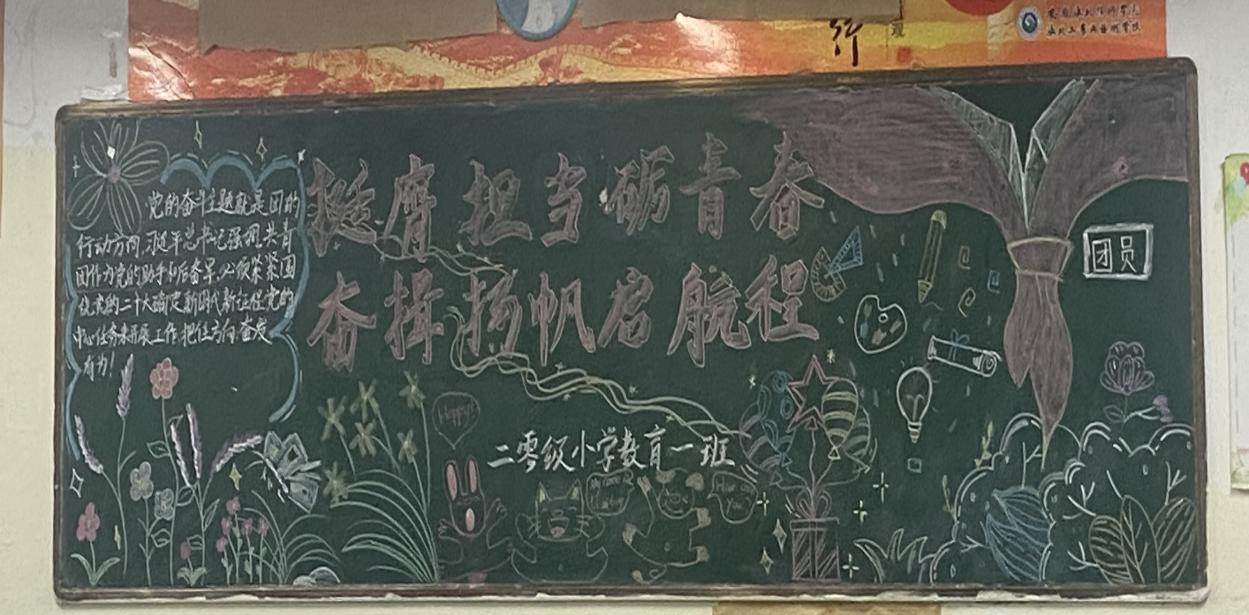 行
挺膺担当砺青春
奋揖扬帆启航程
党的奋斗主题就是团的
行动方向,习近平总书记强调,共青
团作为党的助手和后备军,必须紧紧围
绕党的二十大确定新时代新征程党的
中心任务来开展工作,把住方向,奋发
有为!
团员
Happy!
二零级小学教育一班